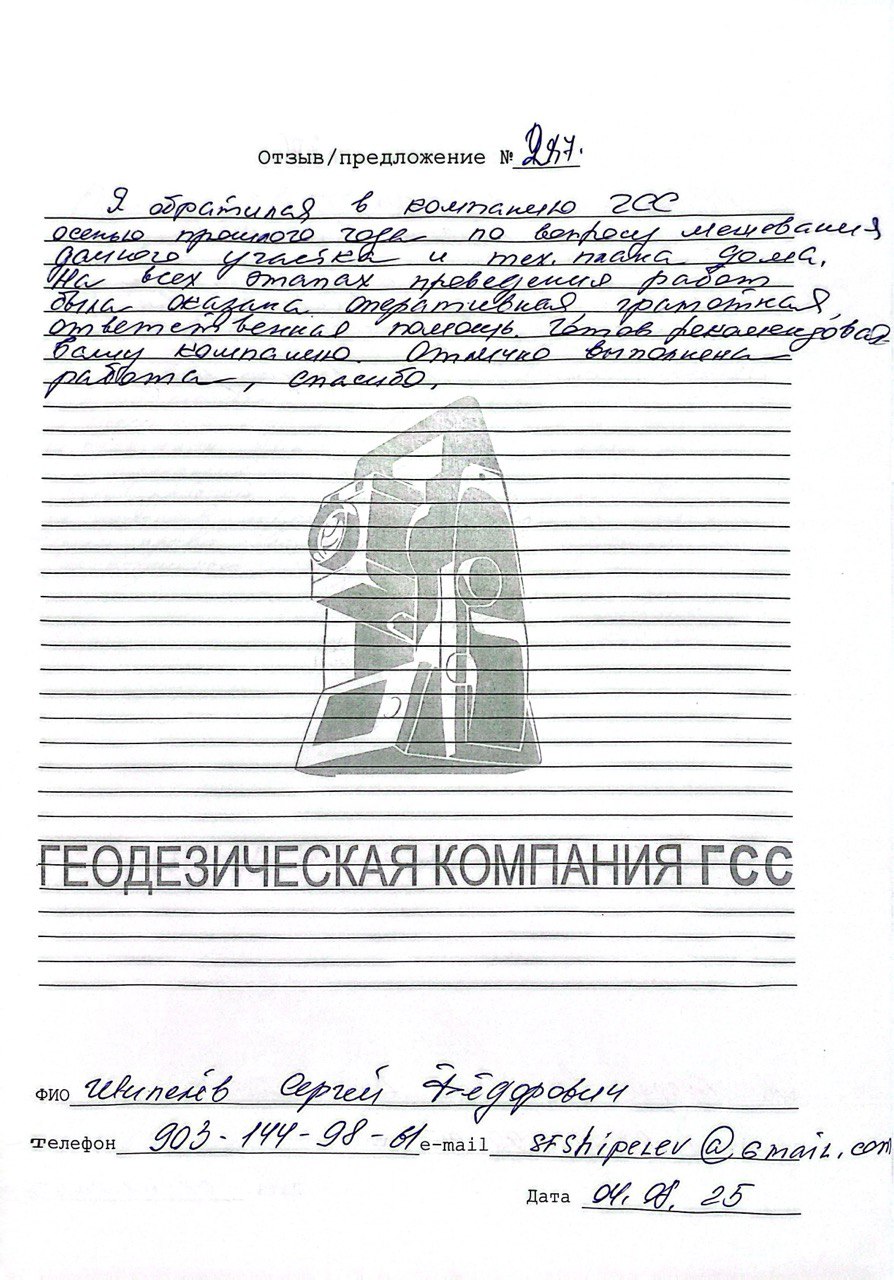 Отзыв/предложение № 287.
Я обратился в компанию ГСС
осенью прошлого года по вопросу межевания
дачного участка и тех. плана дома.
На всех этапах проведения работ
была оказана оперативная, грамотная,
ответственная помощь. Готов рекомендовать
вашу компанию. Отлично выполнена
работа, спасибо.
ГЕОДЕЗИЧЕСКАЯ КОМПАНИЯ ГСС
ФИО Шипелёв Сергей Фёдорович
телефон 903-144-98-61 e-mail sfshipelev@gmail.com
Дата 04.08.25